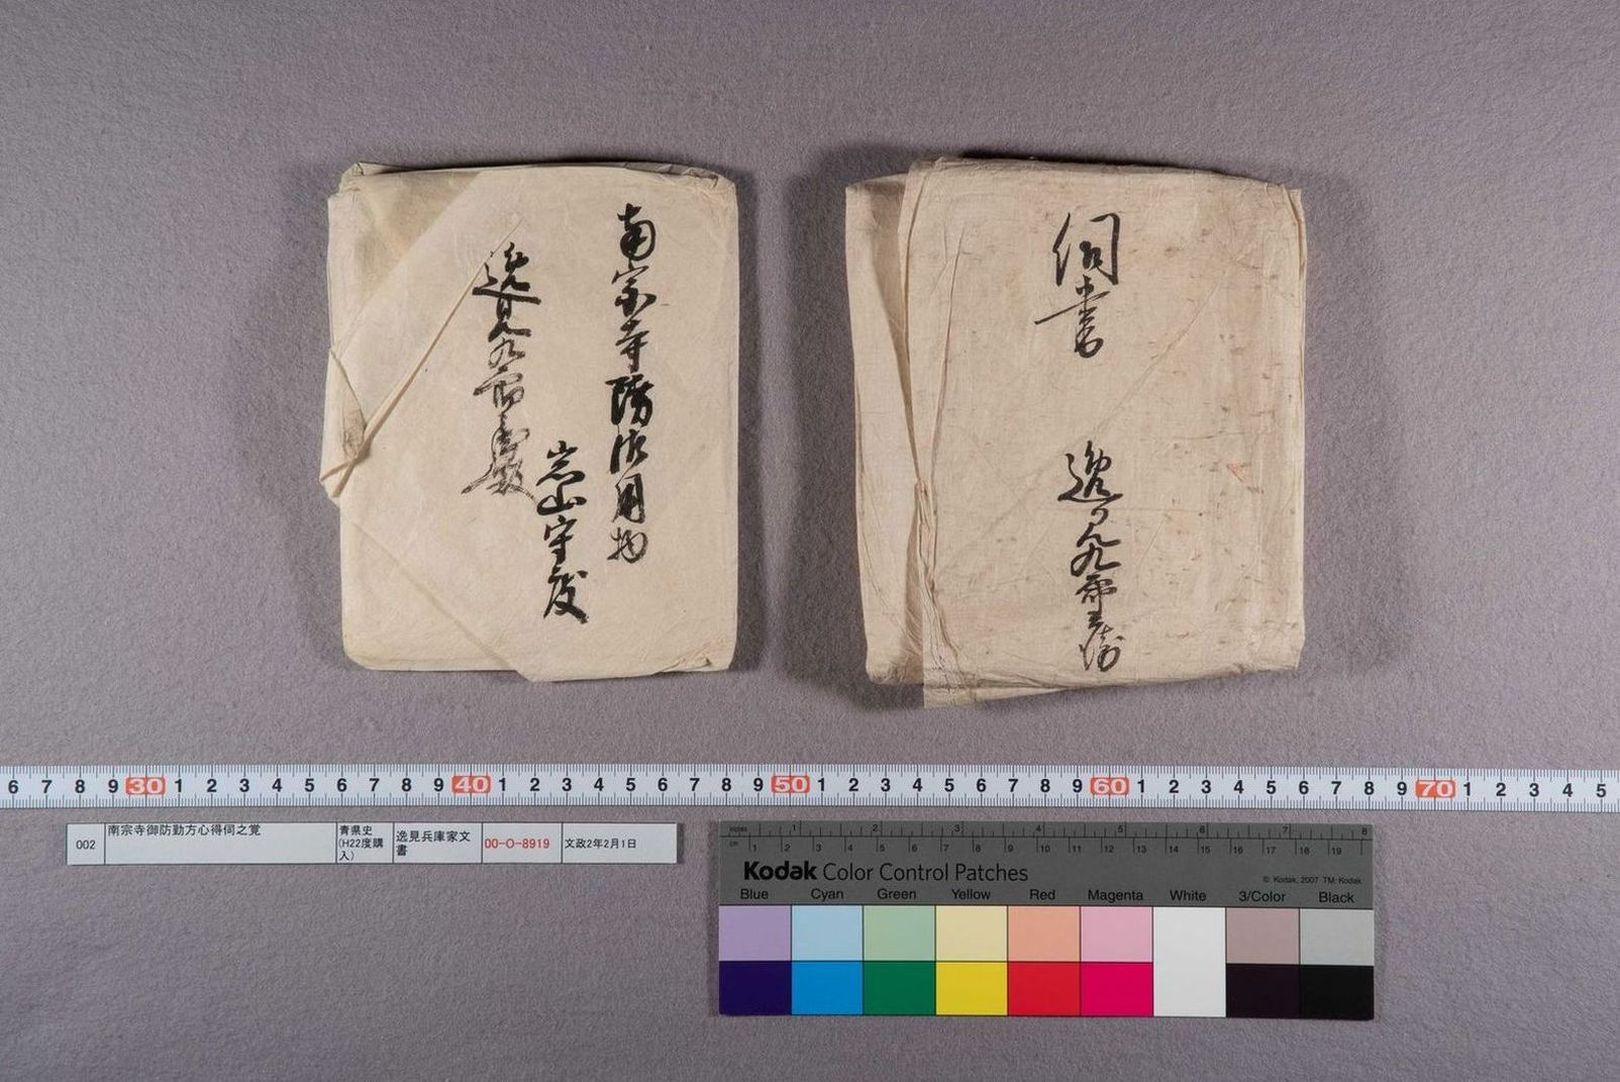 南宗寺防御用物
岩山守殿
逸見九郎兵衛殿
伺書
逸見九郎兵衛
6 7 8 9 30 1 2 3 4 5 6 7 8 9 40 1 2 3 4 5 6 7 8 9 50 1 2 3 4 5 6 7 8 9 60 1 2 3 4 5 6 7 8 9 70 1 2 3 4 5
002 南宗寺御防勤方心得伺之覚 青県史(H22度購入) 逸見兵庫家文書 00-O-8919 文政2年2月1日
inches 1 2 3 4 5 6 7 8
cm 1 2 3 4 5 6 7 8 9 10 11 12 13 14 15 16 17 18 19
Kodak Color Control Patches
© Kodak, 2007 TM: Kodak
Blue Cyan Green Yellow Red Magenta White 3/Color Black